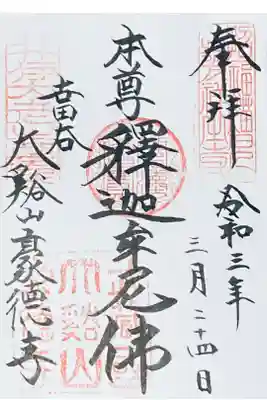 奉拜
令和三年
三月二十四日
本尊
釋迦牟尼佛
世田谷
大谿山豪德寺